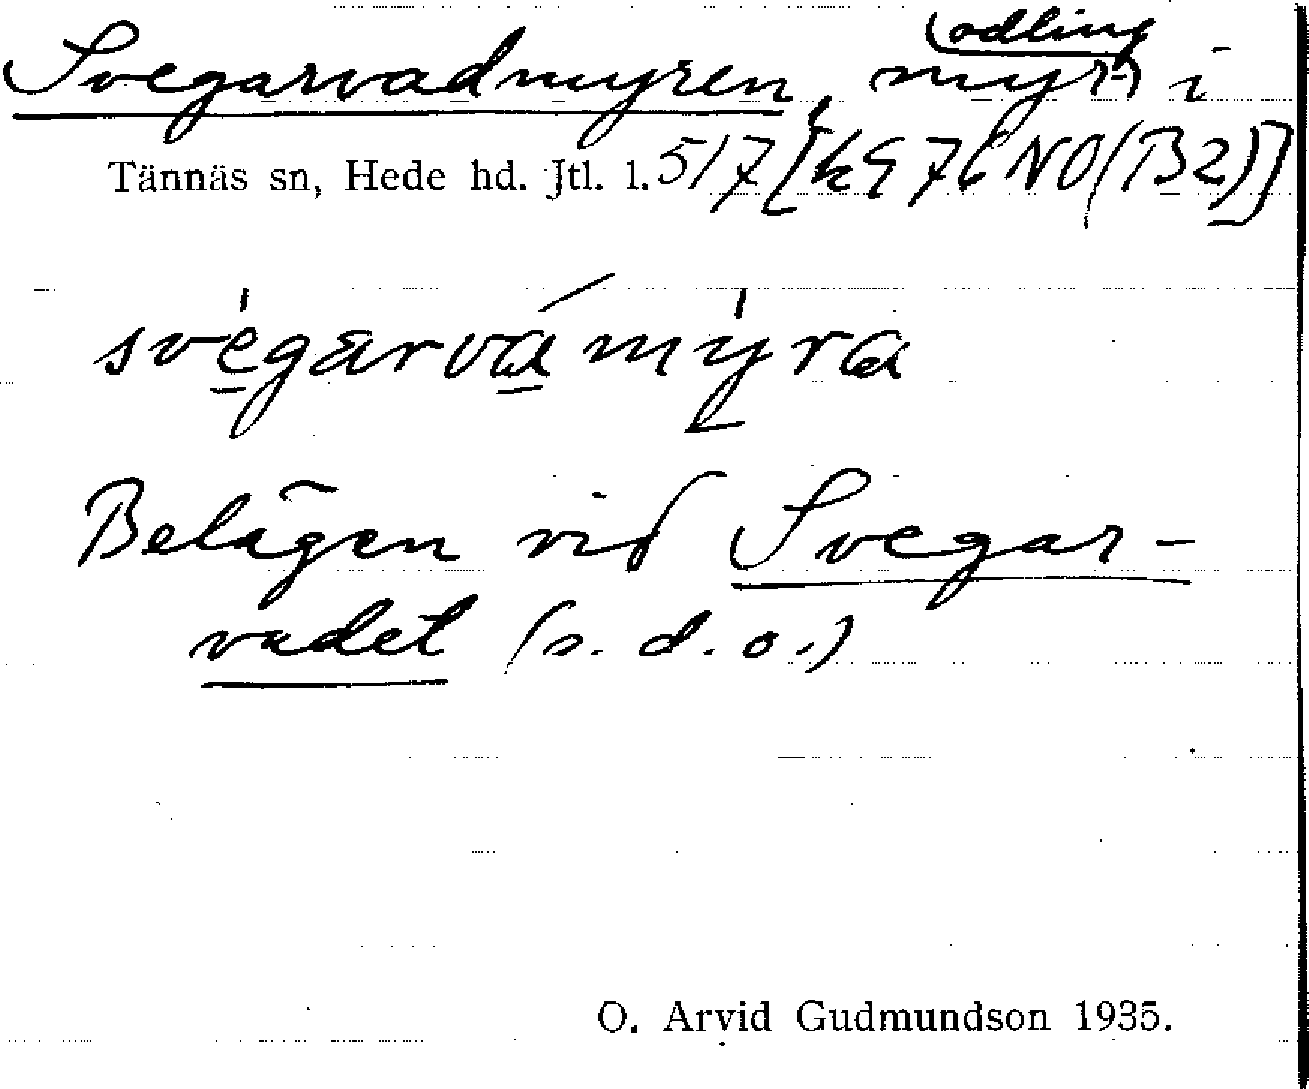 (odling
Svegarvadmyren, myr(-) i
Tännäs sn, Hede hd. Jtl. l. 517 [k976NO(B2)]
svégarvámýra
Belägen vid Svegar-
vadet (s.d.o.)
O. Arvid Gudmundson 1935.